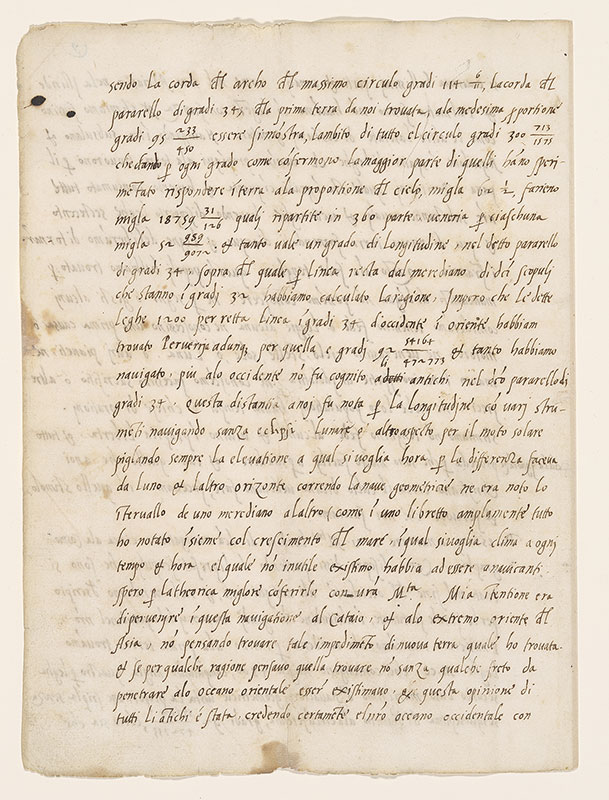 sendo la corda dl archo dl massimo circulo gradi 114 6/11, la corda dl
pararello di gradi 34, dla prima terra da noi trovata, ala medesima pportione
gradi 95 233/450 essere si mostra, lambito di tutto el circulo gradi 300 713/1575
che dando p ogni grado come cōfermono la maggior parte di quelli hāno speri-
mētato rispondere ī terra ala proportione dl cielo, migla 62 1/2, farieno
migla 18759 31/126 quali ripartite in 360 parte veneria p ciaschuna
migla 52 989/9072. & tanto vale un grado di longitudine, nel detto pararello
di gradi 34. sopra dl quale p linea recta dal merediano di dcī scopuli
che stanno ī gradi 32 habbiamo calculato la ragione. Impero che le dette
leghe 1200 per retta linea ī gradi 34 d'occidente ī oriente habbiam
trovato Perverria adunq per quella e gradi 92 54164/472773 & tanto habbiamo
navigato, piu alo occidente nō fu cognito a detti antichi nel dcō pararello di
gradi 34. Questa distantia a noi fu nota p la longitudine cō varij stru-
mēti navigando sanza eclipsi lunare o altro aspecto per il moto solare
piglando sempre la elevatione a qual si voglia hora p la differenza faceva
da luno & laltro orizonte correndo la nave geometricie ne era noto lo
ītervallo de uno merediano alaltro, come ī uno libretto amplamente tutto
ho notato īsieme col crescimento dl mare ī qual si voglia clima a ogni
tempo & hora el quale nō inutile existimo habbia ad essere a naviganti
spero p la theorica miglore cōferirlo con vrā Mta Mia ītentione era
di pervenyre ī questa navigatione al Cataio, & alo extremo oriente dl
Asia, nō pensando trovare tale impedimēto di nuova terra quale ho trovata.
& se per qualche ragione pensavo quella trovare nō sanza qualche freto da
penetrare alo oceano orientale esser existimavo. & questa opinione di
tutti li antichi è stata, credendo certamēte el nrō oceano occidentale con